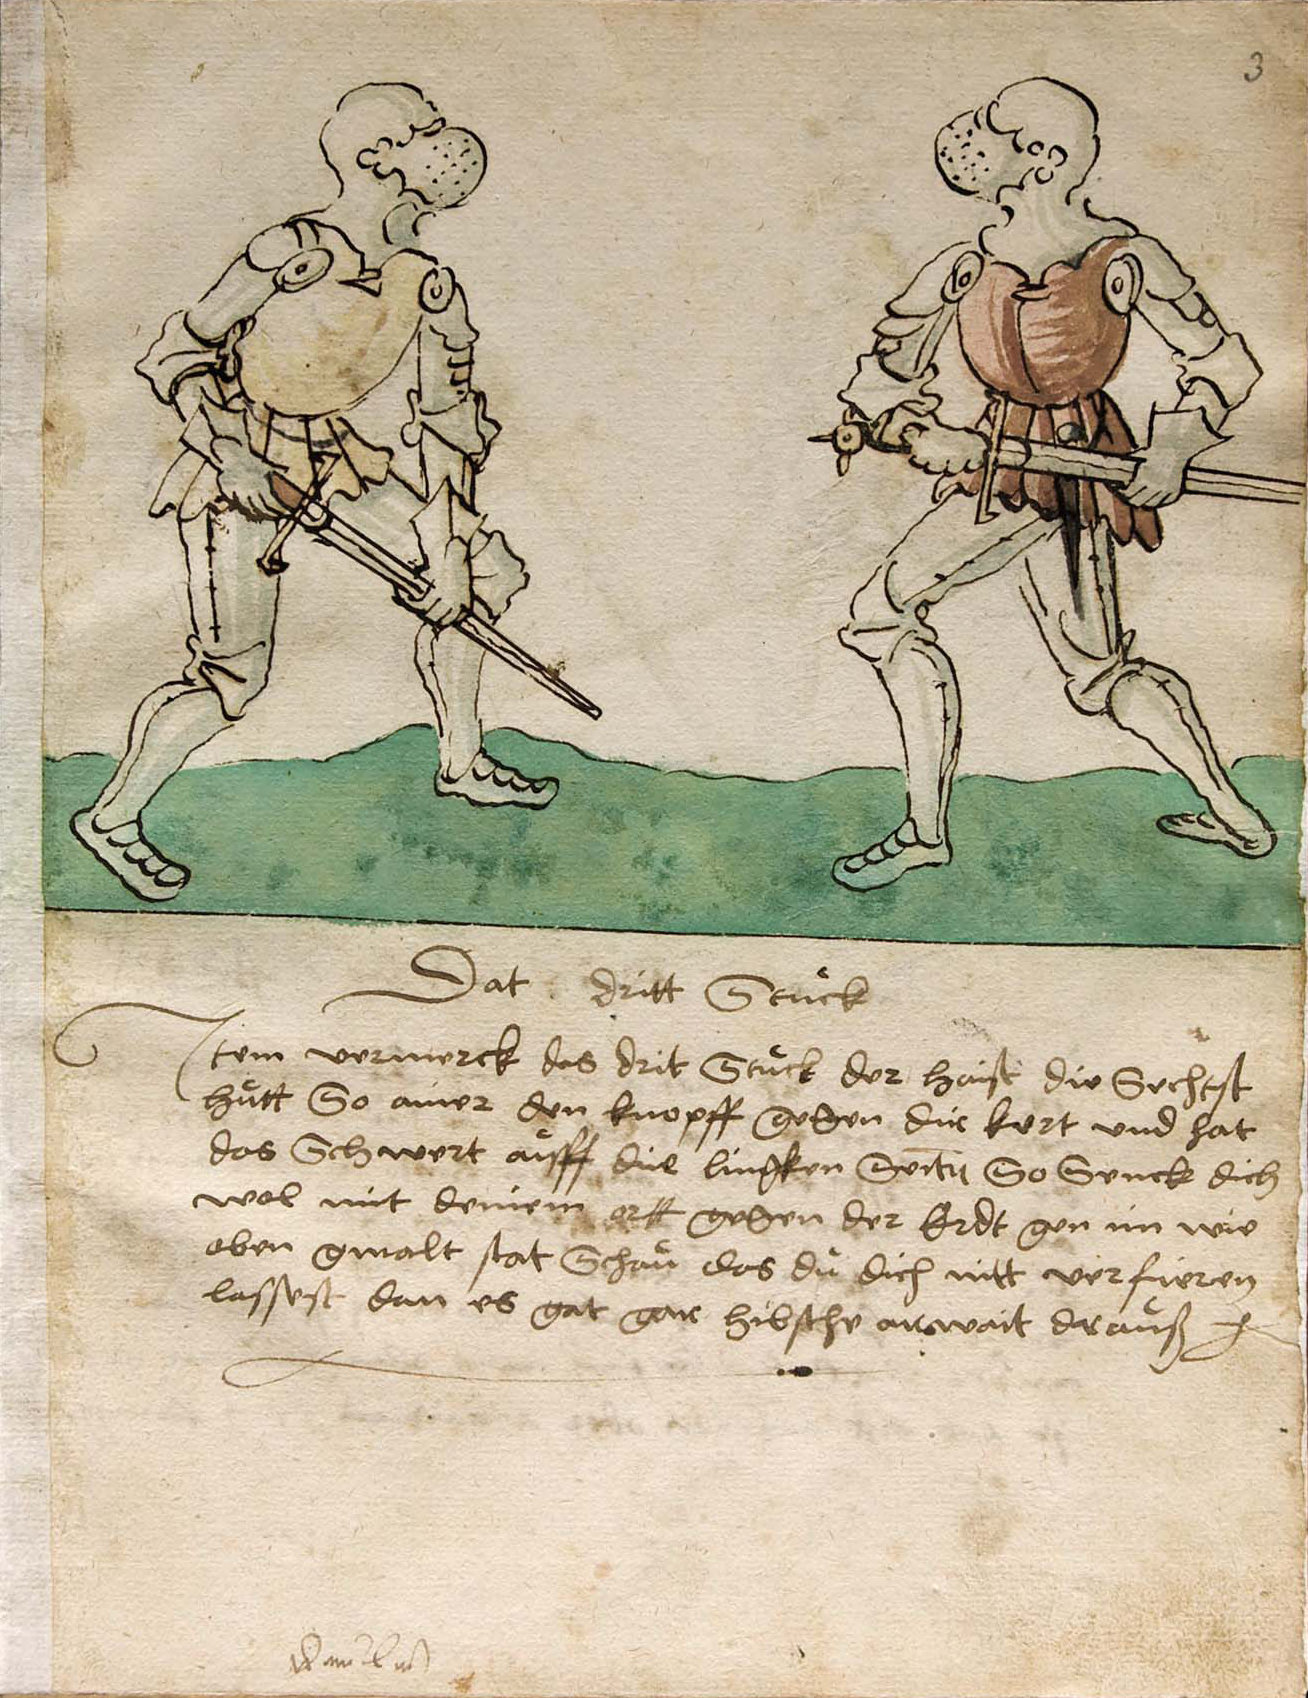 3
Dat dritt Stuck
Item vermerck das drit Stuck der haist die Sechst
hůtt So ainer den knopff gegen dir kert und hat
das Schwert aůff die lingken Seittn So Senck dich
wol mit deinem ortt gegen der Erdt gen im wie
oben gmalt stat Schaů das dů dich nitt verfieren
lassest dan es gat gar hibsche arwait draůß